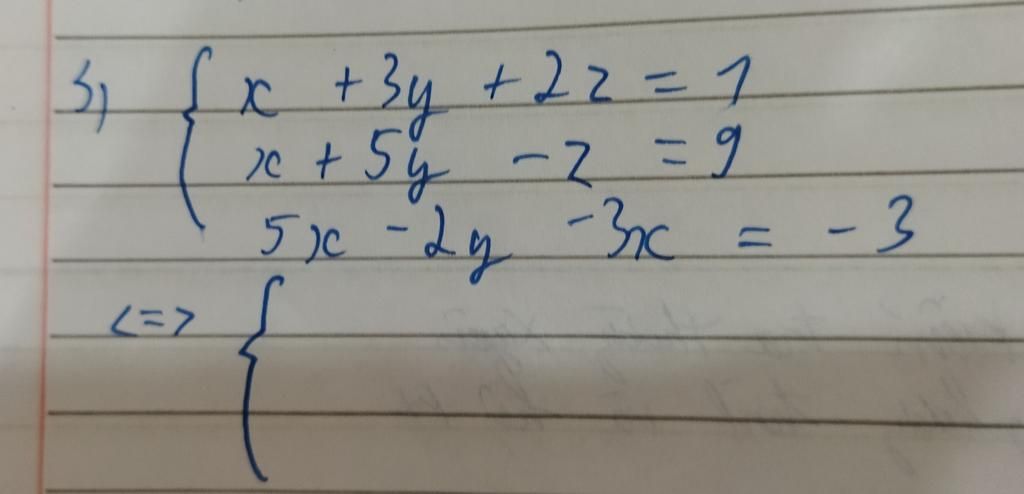 3, { x + 3y + 2z = 1
x + 5y - z = 9
5x - 2y - 3x = - 3
<=> {